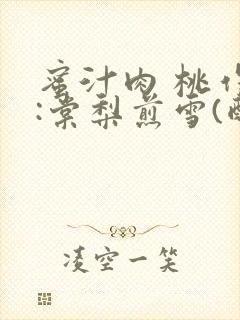 蜜汁肉桃作
:棠梨煎雪(
凌空一笑